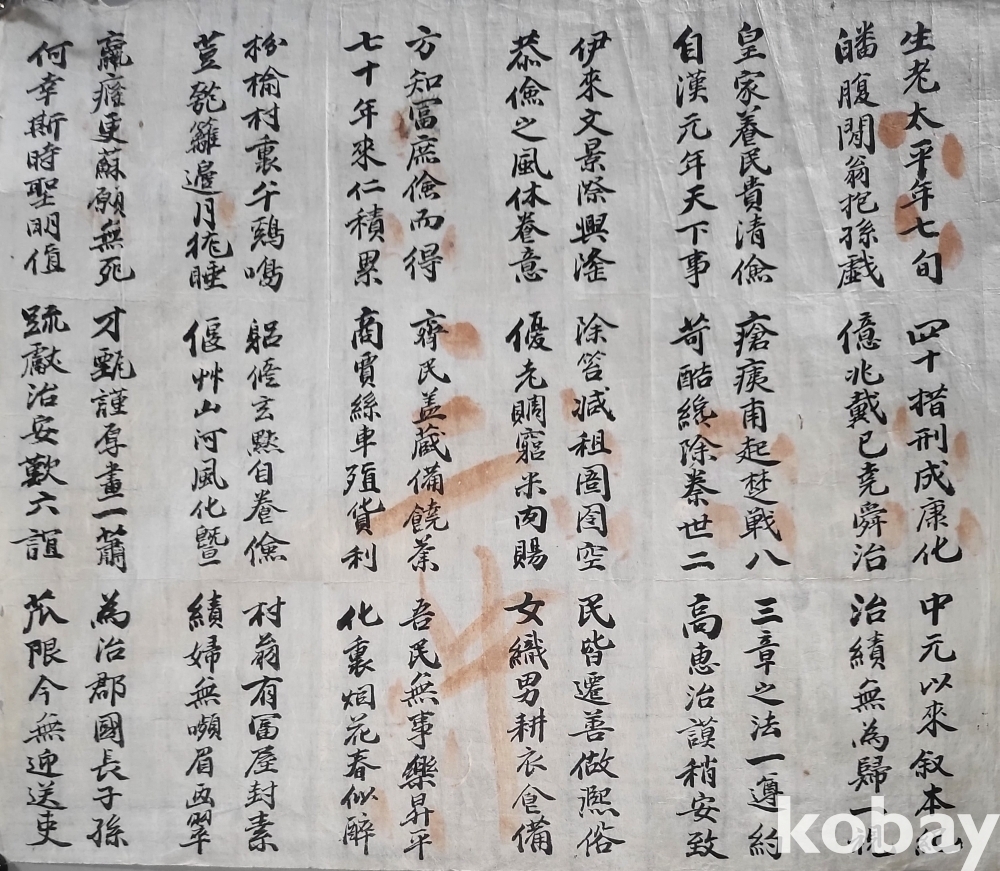 生老太平年七旬
皤腹閒翁抱孫戱
四十措刑成康化
億兆戴已堯舜治
中元以來叙本紀
治績無為歸一視
皇家養民貴清儉
自漢元年天下事
瘡痍甫起楚戰八
苛酷纔除秦世二
三章之法一遵約
高惠治謨稍安致
伊來文景際興隆
恭儉之風休養意
除笞减租囹圄空
優老賙窮米肉賜
民皆遷善做淵俗
女織男耕衣食備
方知富庶儉而得
七十年來仁積累
齊民盖藏備饒茶
商賈絲車殖貨利
吾民無事樂昇平
化裏烟花春似醉
枌楡村裏午鷄鳴
荳龍籬邊月狵睡
躬修玄默自養儉
偃艸山河風化曁
村翁有冨屋封素
績婦無嚬眉画翠
羸癃更蘇願無死
何幸斯時聖明値
才甄謹厚畫一蕭
疏獻治安歎六誼
為治郡國長子孫
苽限今無迎送吏
kobay